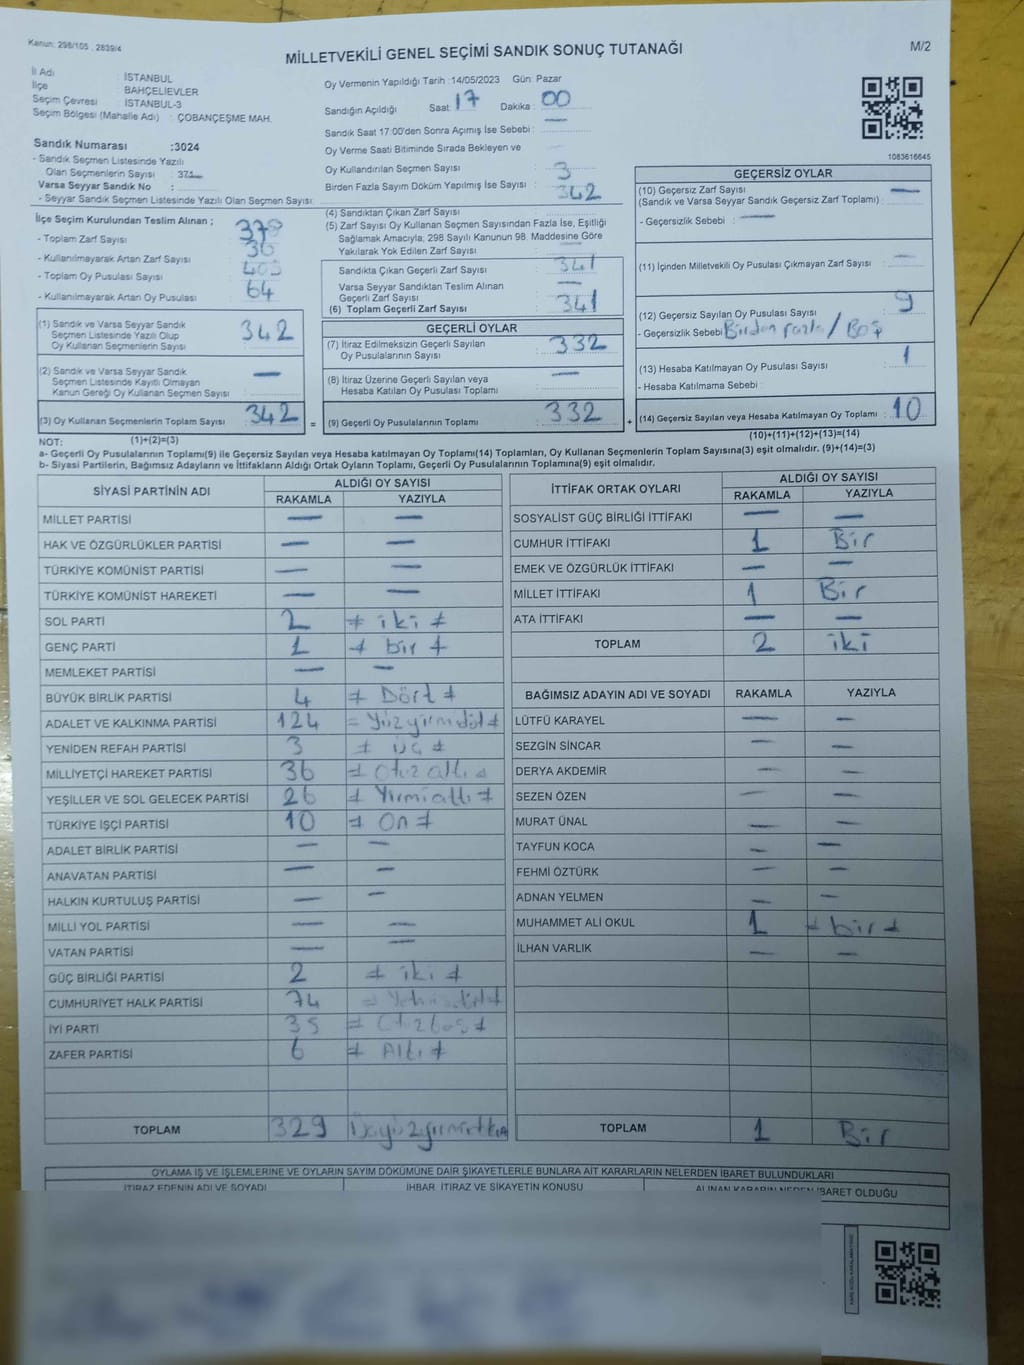 Kanun: 298/105 , 2839/4
MİLLETVEKİLİ GENEL SEÇİMİ SANDIK SONUÇ TUTANAĞI
M/2
İl Adı : İSTANBUL
İlçe : BAHÇELİEVLER
Seçim Çevresi : İSTANBUL-3
Seçim Bölgesi (Mahalle Adı) : ÇOBANÇEŞME MAH.
Oy Vermenin Yapıldığı Tarih :14/05/2023 Gün: Pazar
Sandığın Açıldığı Saat 17 Dakika : 00
Sandık Saat 17:00'den Sonra Açımış İse Sebebi : —
Oy Verme Saati Bitiminde Sırada Bekleyen ve
Oy Kullandırılan Seçmen Sayısı : 3
Birden Fazla Sayım Döküm Yapılmış İse Sayısı : 342
1083616645
Sandık Numarası :3024
- Sandık Seçmen Listesinde Yazılı
Olan Seçmenlerin Sayısı :
Varsa Seyyar Sandık No :
- Seyyar Sandık Seçmen Listesinde Yazılı Olan Seçmen Sayısı:
İlçe Seçim Kurulundan Teslim Alınan ;
- Toplam Zarf Sayısı :
- Kullanılmayarak Artan Zarf Sayısı : 36
- Toplam Oy Pusulası Sayısı :
- Kullanılmayarak Artan Oy Pusulası : 64
(1) Sandık ve Varsa Seyyar Sandık
Seçmen Listesinde Yazılı Olup
Oy Kullanan Seçmenlerin Sayısı : 342
(2) Sandık ve Varsa Seyyar Sandık
Seçmen Listesinde Kayıtlı Olmayan
Kanun Gereği Oy Kullanan Seçmen Sayısı : —
(3) Oy Kullanan Seçmenlerin Toplam Sayısı : 342
(4) Sandıktan Çıkan Zarf Sayısı :
(5) Zarf Sayısı Oy Kullanan Seçmen Sayısından Fazla İse, Eşitliği
Sağlamak Amacıyla, 298 Sayılı Kanunun 98. Maddesine Göre
Yakılarak Yok Edilen Zarf Sayısı : —
Sandıkta Çıkan Geçerli Zarf Sayısı : 341
Varsa Seyyar Sandıktan Teslim Alınan
Geçerli Zarf Sayısı : —
(6) Toplam Geçerli Zarf Sayısı : 341
GEÇERLİ OYLAR
(7) İtiraz Edilmeksizin Geçerli Sayılan
Oy Pusulalarının Sayısı : 332
(8) İtiraz Üzerine Geçerli Sayılan veya
Hesaba Katılan Oy Pusulası Toplamı : —
= (9) Geçerli Oy Pusulalarının Toplamı : 332 +
GEÇERSİZ OYLAR
(10) Geçersiz Zarf Sayısı : —
(Sandık ve Varsa Seyyar Sandık Geçersiz Zarf Toplamı) :
- Geçersizlik Sebebi : —
(11) İçinden Milletvekili Oy Pusulası Çıkmayan Zarf Sayısı : —
(12) Geçersiz Sayılan Oy Pusulası Sayısı : 9
- Geçersizlik Sebebi : Birden fazla / Boş
(13) Hesaba Katılmayan Oy Pusulası Sayısı : 1
- Hesaba Katılmama Sebebi :
(14) Geçersiz Sayılan veya Hesaba Katılmayan Oy Toplamı : 10
NOT: (1)+(2)=(3)
(10)+(11)+(12)+(13)=(14)
a- Geçerli Oy Pusulalarının Toplamı(9) ile Geçersiz Sayılan veya Hesaba katılmayan Oy Toplamı(14) Toplamları, Oy Kullanan Seçmenlerin Toplam Sayısına(3) eşit olmalıdır. (9)+(14)=(3)
b- Siyasi Partilerin, Bağımsız Adayların ve İttifakların Aldığı Ortak Oyların Toplamı, Geçerli Oy Pusulalarının Toplamına(9) eşit olmalıdır.
SİYASİ PARTİNİN ADI ALDIĞI OY SAYISI
RAKAMLA YAZIYLA
MİLLET PARTİSİ — —
HAK VE ÖZGÜRLÜKLER PARTİSİ — —
TÜRKİYE KOMÜNİST PARTİSİ — —
TÜRKİYE KOMÜNİST HAREKETİ — —
SOL PARTİ 2 ≠ iki ≠
GENÇ PARTİ 1 ≠ bir ≠
MEMLEKET PARTİSİ — —
BÜYÜK BİRLİK PARTİSİ 4 ≠ Dört ≠
ADALET VE KALKINMA PARTİSİ 124 = Yüzyirmidört ≠
YENİDEN REFAH PARTİSİ 3 ≠ üç ≠
MİLLİYETÇİ HAREKET PARTİSİ 36 ≠ Otuz altı ≠
YEŞİLLER VE SOL GELECEK PARTİSİ 26 ≠ Yirmialtı ≠
TÜRKİYE İŞÇİ PARTİSİ 10 ≠ On ≠
ADALET BİRLİK PARTİSİ — —
ANAVATAN PARTİSİ — —
HALKIN KURTULUŞ PARTİSİ — —
MİLLİ YOL PARTİSİ — —
VATAN PARTİSİ — —
GÜÇ BİRLİĞİ PARTİSİ 2 ≠ iki ≠
CUMHURİYET HALK PARTİSİ 74 = Yetmişdört ≠
İYİ PARTİ 35 ≠ Otuzbeş ≠
ZAFER PARTİSİ 6 ≠ Altı ≠
TOPLAM 329
İTTİFAK ORTAK OYLARI ALDIĞI OY SAYISI
RAKAMLA YAZIYLA
SOSYALİST GÜÇ BİRLİĞİ İTTİFAKI — —
CUMHUR İTTİFAKI 1 Bir
EMEK VE ÖZGÜRLÜK İTTİFAKI — —
MİLLET İTTİFAKI 1 Bir
ATA İTTİFAKI — —
TOPLAM 2 iki
BAĞIMSIZ ADAYIN ADI VE SOYADI RAKAMLA YAZIYLA
LÜTFÜ KARAYEL — —
SEZGİN SİNCAR — —
DERYA AKDEMİR — —
SEZEN ÖZEN — —
MURAT ÜNAL — —
TAYFUN KOCA — —
FEHMİ ÖZTÜRK — —
ADNAN YELMEN — —
MUHAMMET ALİ OKUL 1 ≠ bir ≠
İLHAN VARLIK — —
TOPLAM 1 Bir
OYLAMA İŞ VE İŞLEMLERİNE VE OYLARIN SAYIM DÖKÜMÜNE DAİR ŞİKAYETLERLE BUNLARA AİT KARARLARIN NELERDEN İBARET BULUNDUKLARI
İTİRAZ EDENİN ADI VE SOYADI İHBAR, İTİRAZ VE ŞİKAYETİN KONUSU ALINAN KARARIN NEDEN İBARET OLDUĞU